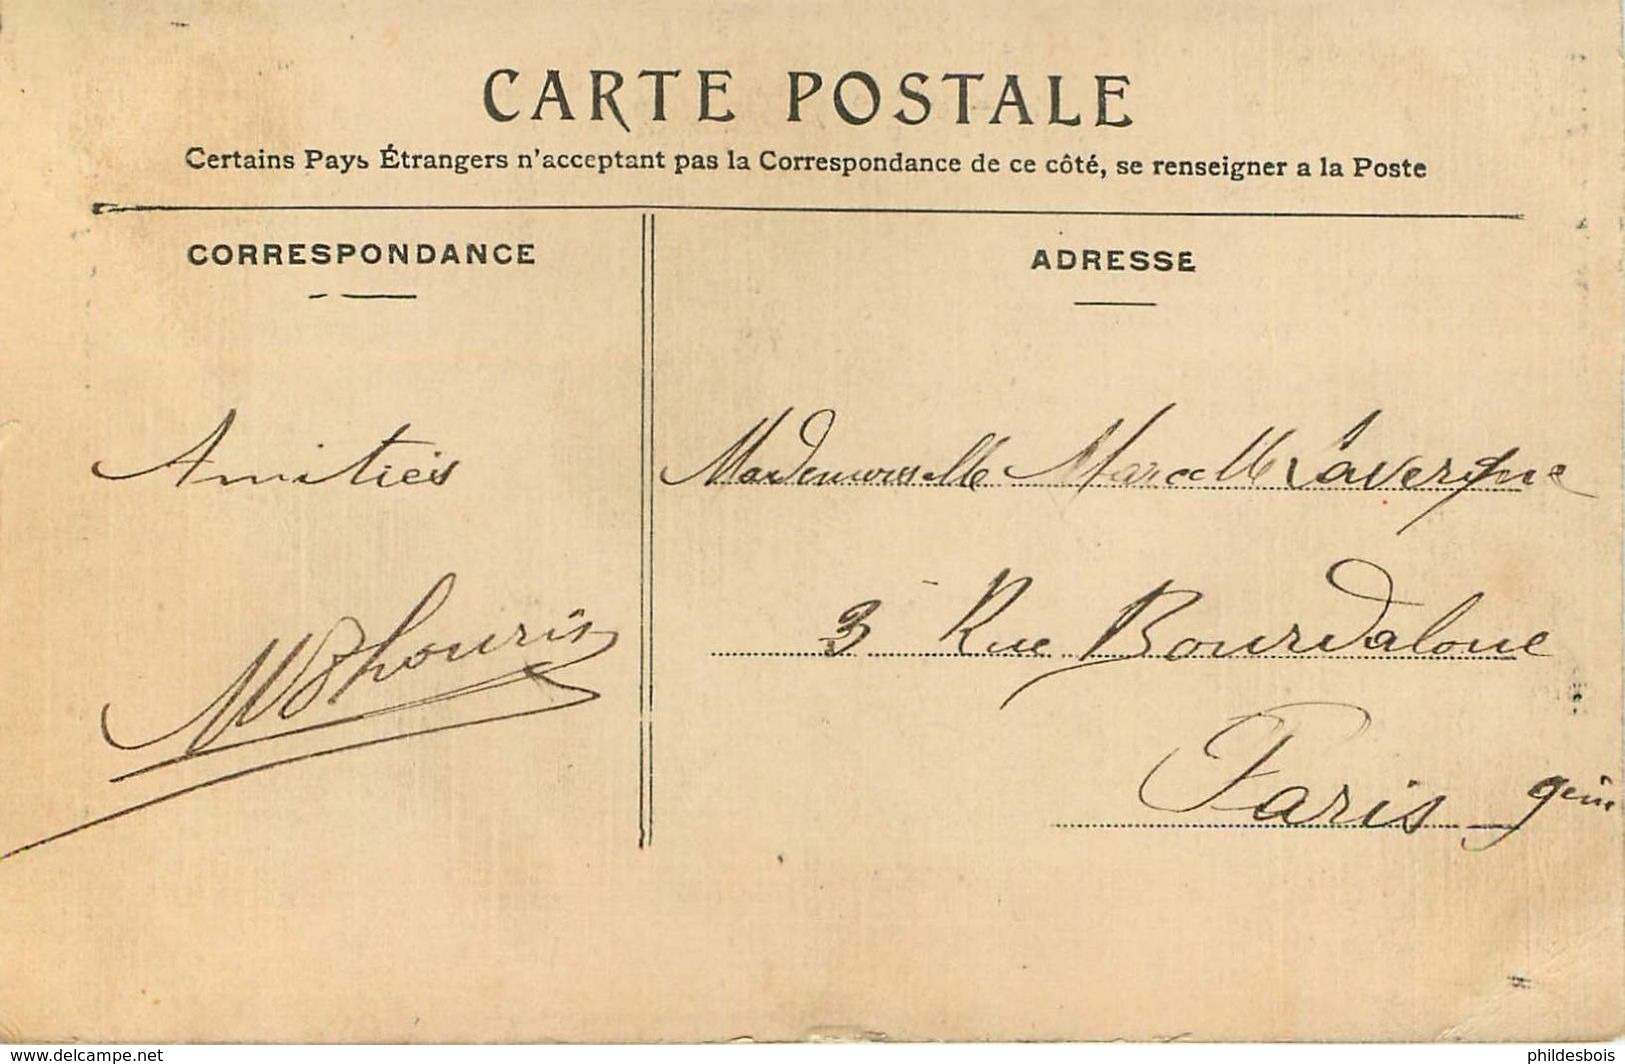 CARTE POSTALE
Certains Pays Étrangers n'acceptant pas la Correspondance de ce côté, se renseigner a la Poste
CORRESPONDANCE
Amitiés
ADRESSE
Mademoiselle Marcelle Lavergne
3 Rue Bourdaloue
Paris 9ème
www.delcampe.net
phildesbois